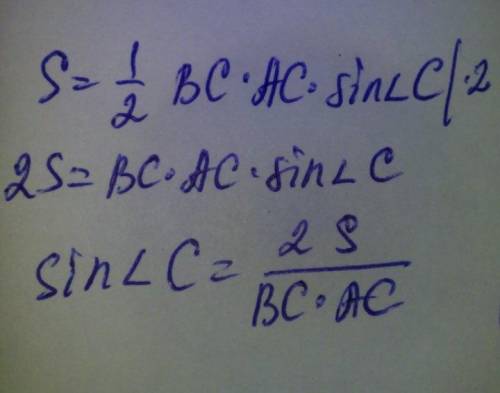 S = 1/2 BC · AC · sin∠C | · 2
2S = BC · AC · sin∠C
sin∠C = 2S / BC · AC